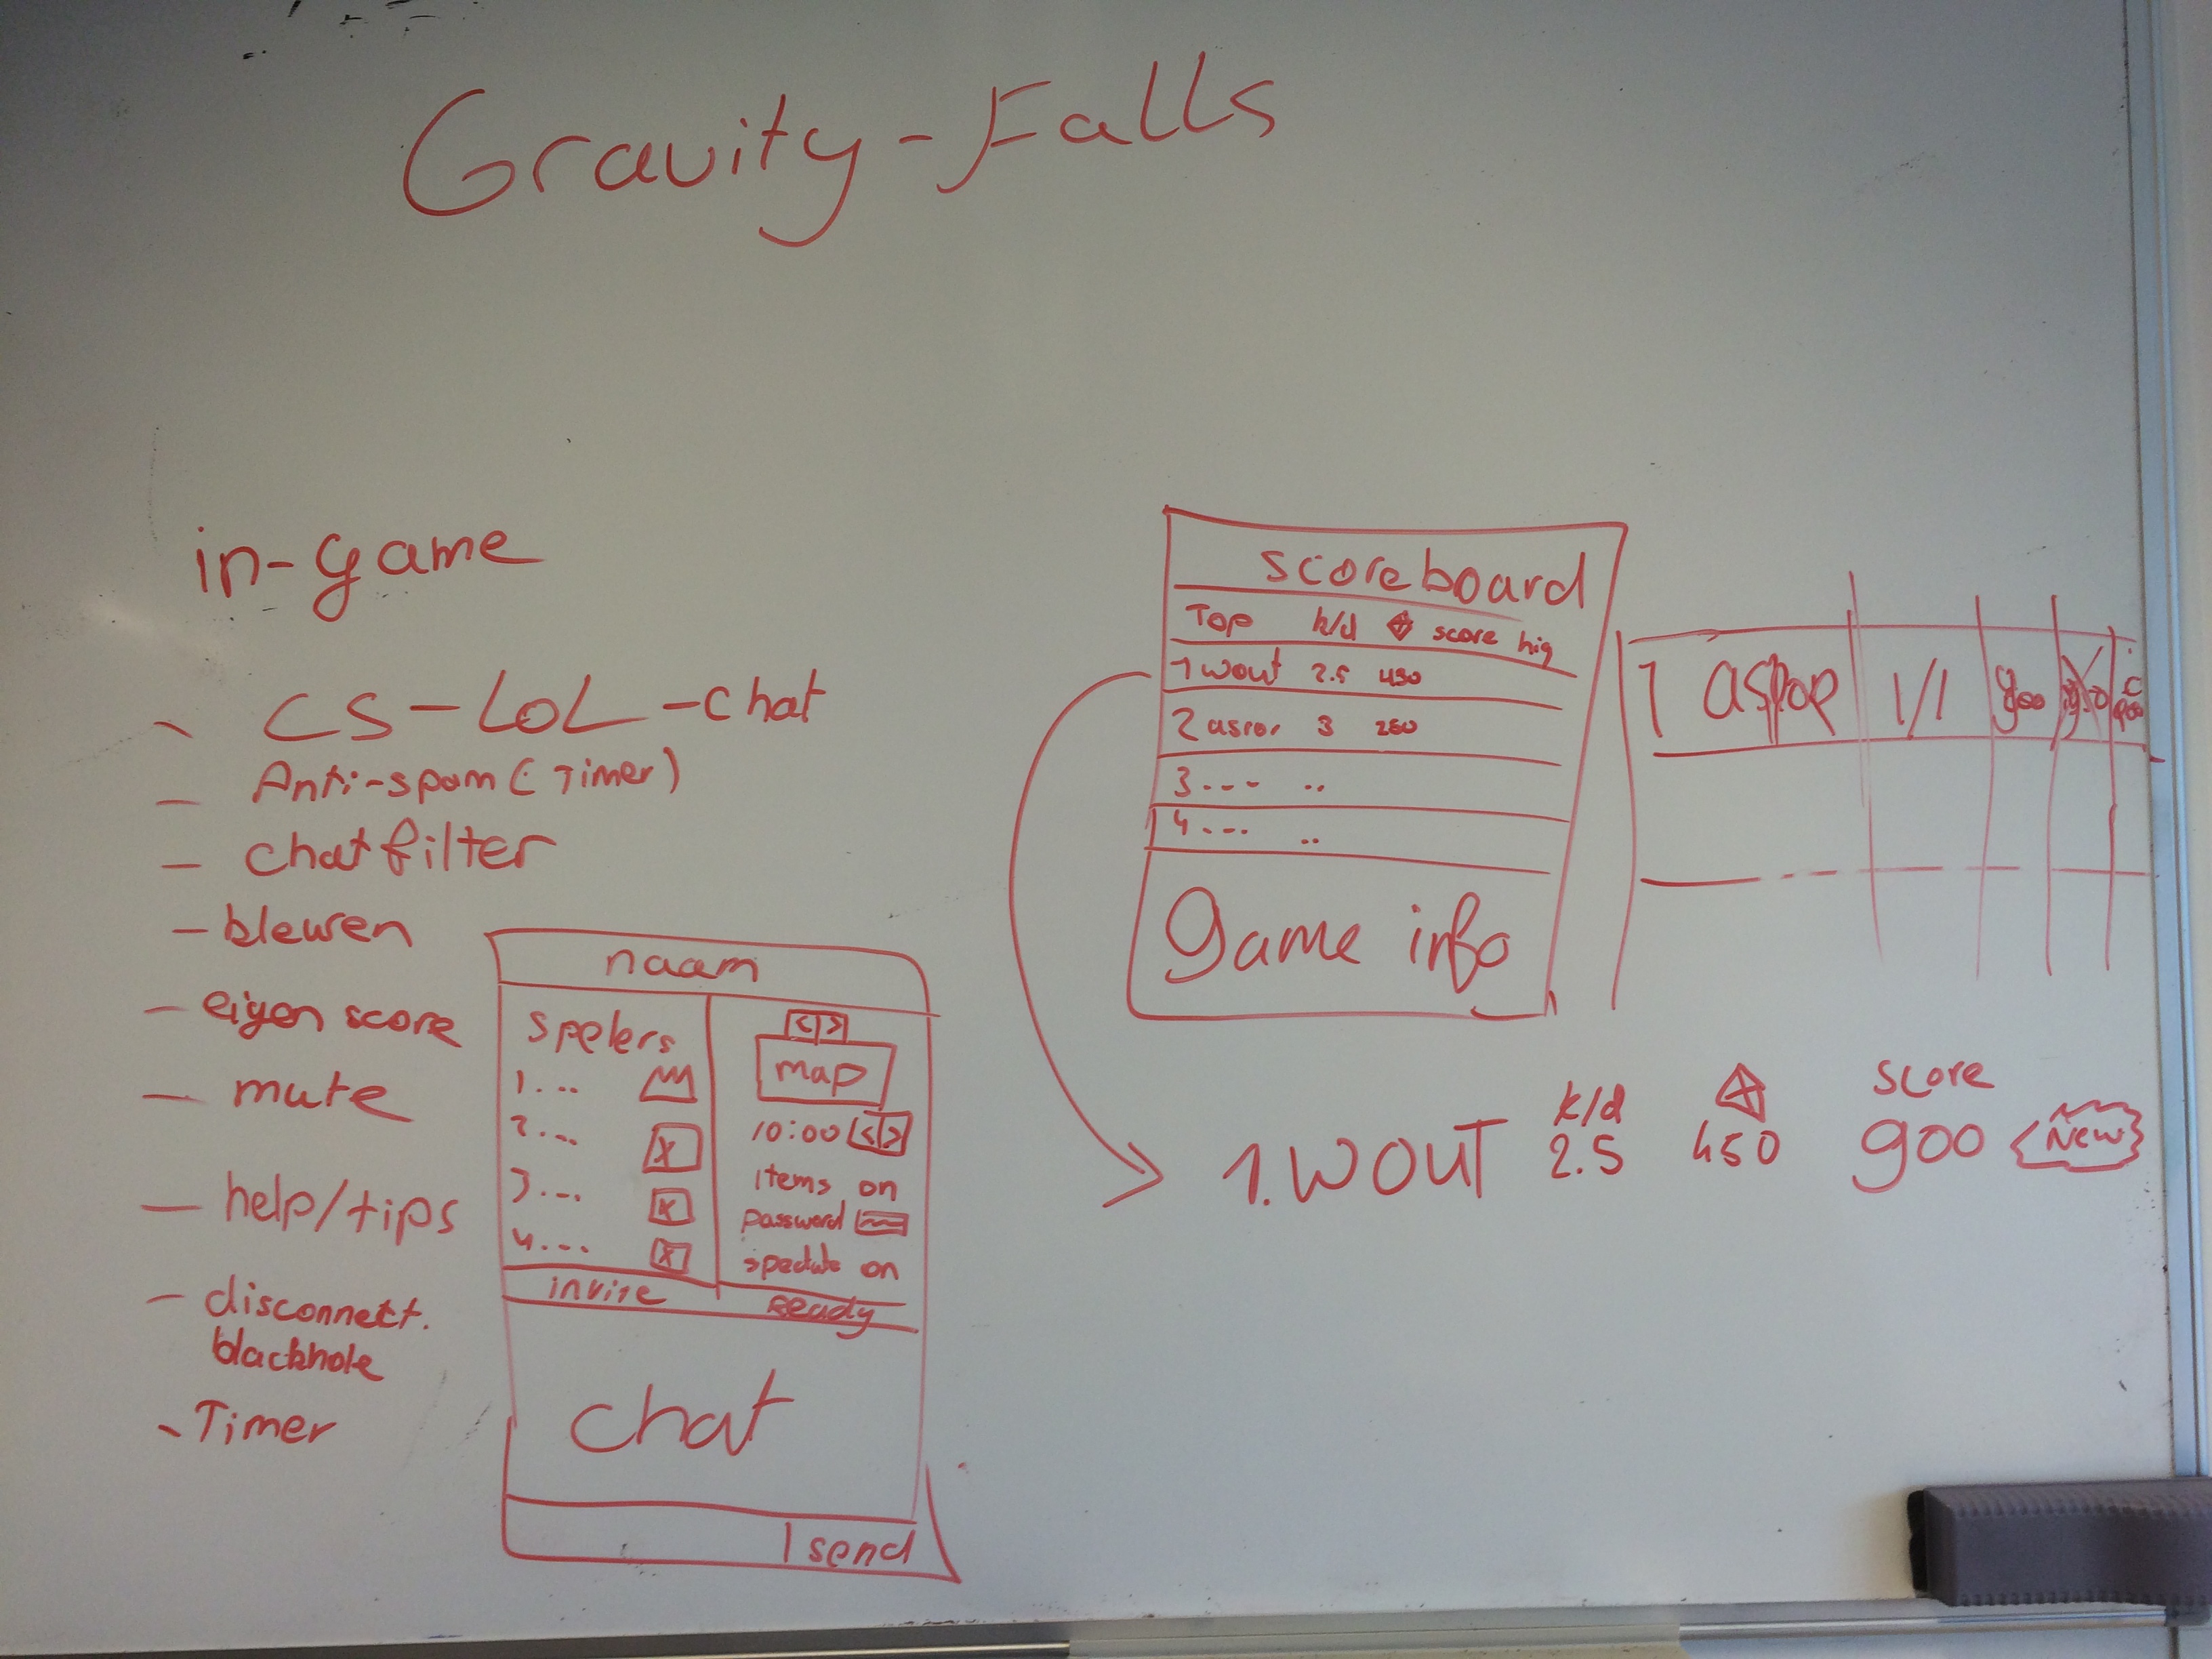 Gravity-Falls
in-game
- CS-LOL-chat
- Anti-spam (Timer)
- chatfilter
- kleuren
- eigen score
- mute
- help/tips
- disconnect.
blackhole
- Timer
naam
spelers
1...
2...
3...
4...
invite
< | >
map
10:00 < | >
items on
password
spectate on
Ready
chat
send
scoreboard
Top k/d score hig
1 wout 2.5 450
2 asror 3 250
3.... ..
4.... ..
game info
1 1/1
k/d score
1. WOUT 2.5 450 900 New